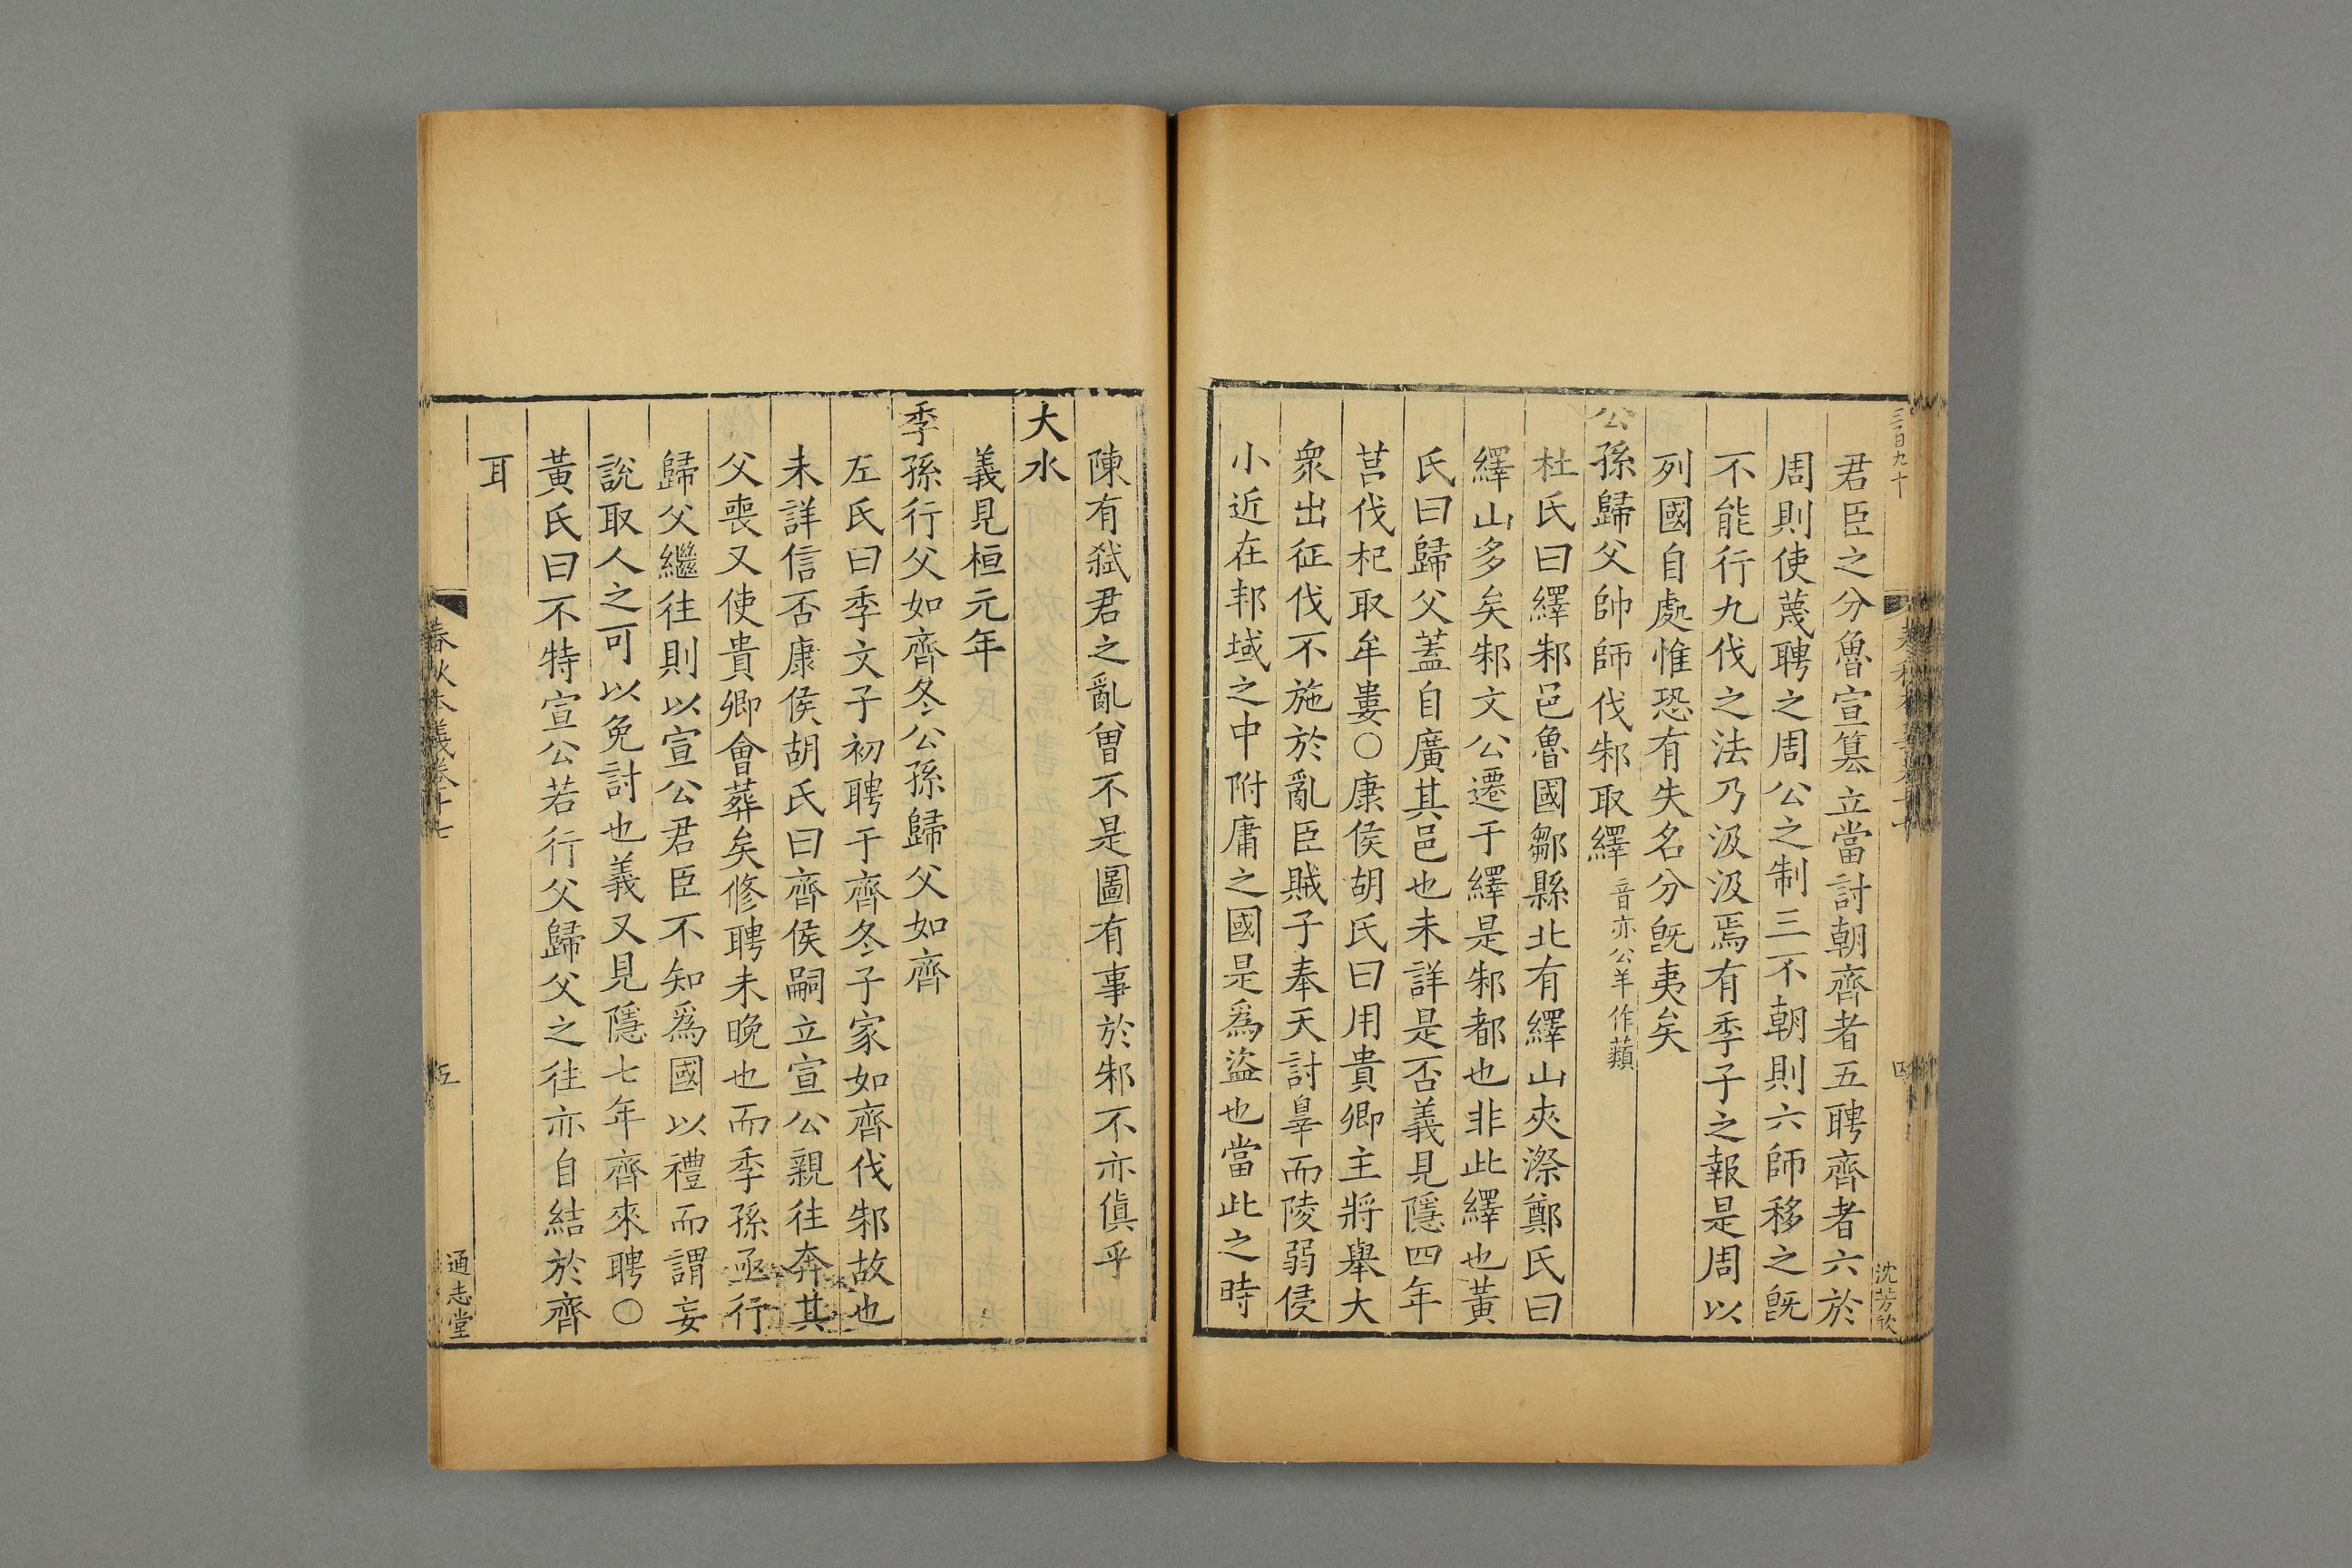 三百九十
四
沈芳欣
君臣之分魯宣篡立當討朝齊者五聘齊者六於
周則使蔑聘之周公之制三不朝則六師移之旣
不能行九伐之法乃汲汲焉有季子之報是周以
列國自處惟恐有失名分旣夷矣
公孫歸父帥師伐邾取繹音亦公羊作蘱
杜氏曰繹邾邑魯國鄒縣北有繹山夾漈鄭氏曰
繹山多矣邾文公遷于繹是邾都也非此繹也黃
氏曰歸父蓋自廣其邑也未詳是否義見隱四年
莒伐杞取牟婁〇康侯胡氏曰用貴卿主將舉大
衆出征伐不施於亂臣賊子奉天討辠而陵弱侵
小近在邦域之中附庸之國是爲盜也當此之時
陳有弑君之亂曾不是圖有事於邾不亦傎乎
大水
義見桓元年
季孫行父如齊冬公孫歸父如齊
左氏曰季文子初聘于齊冬子家如齊伐邾故也
未詳信否康侯胡氏曰齊侯嗣立宣公親往奔其
父喪又使貴卿會葬矣修聘未晚也而季孫亟行
歸父繼往則以宣公君臣不知爲國以禮而謂妄
說取人之可以免討也義又見隱七年齊來聘〇
黃氏曰不特宣公若行父歸父之往亦自結於齊
耳
春秋本義卷十七
五
通志堂